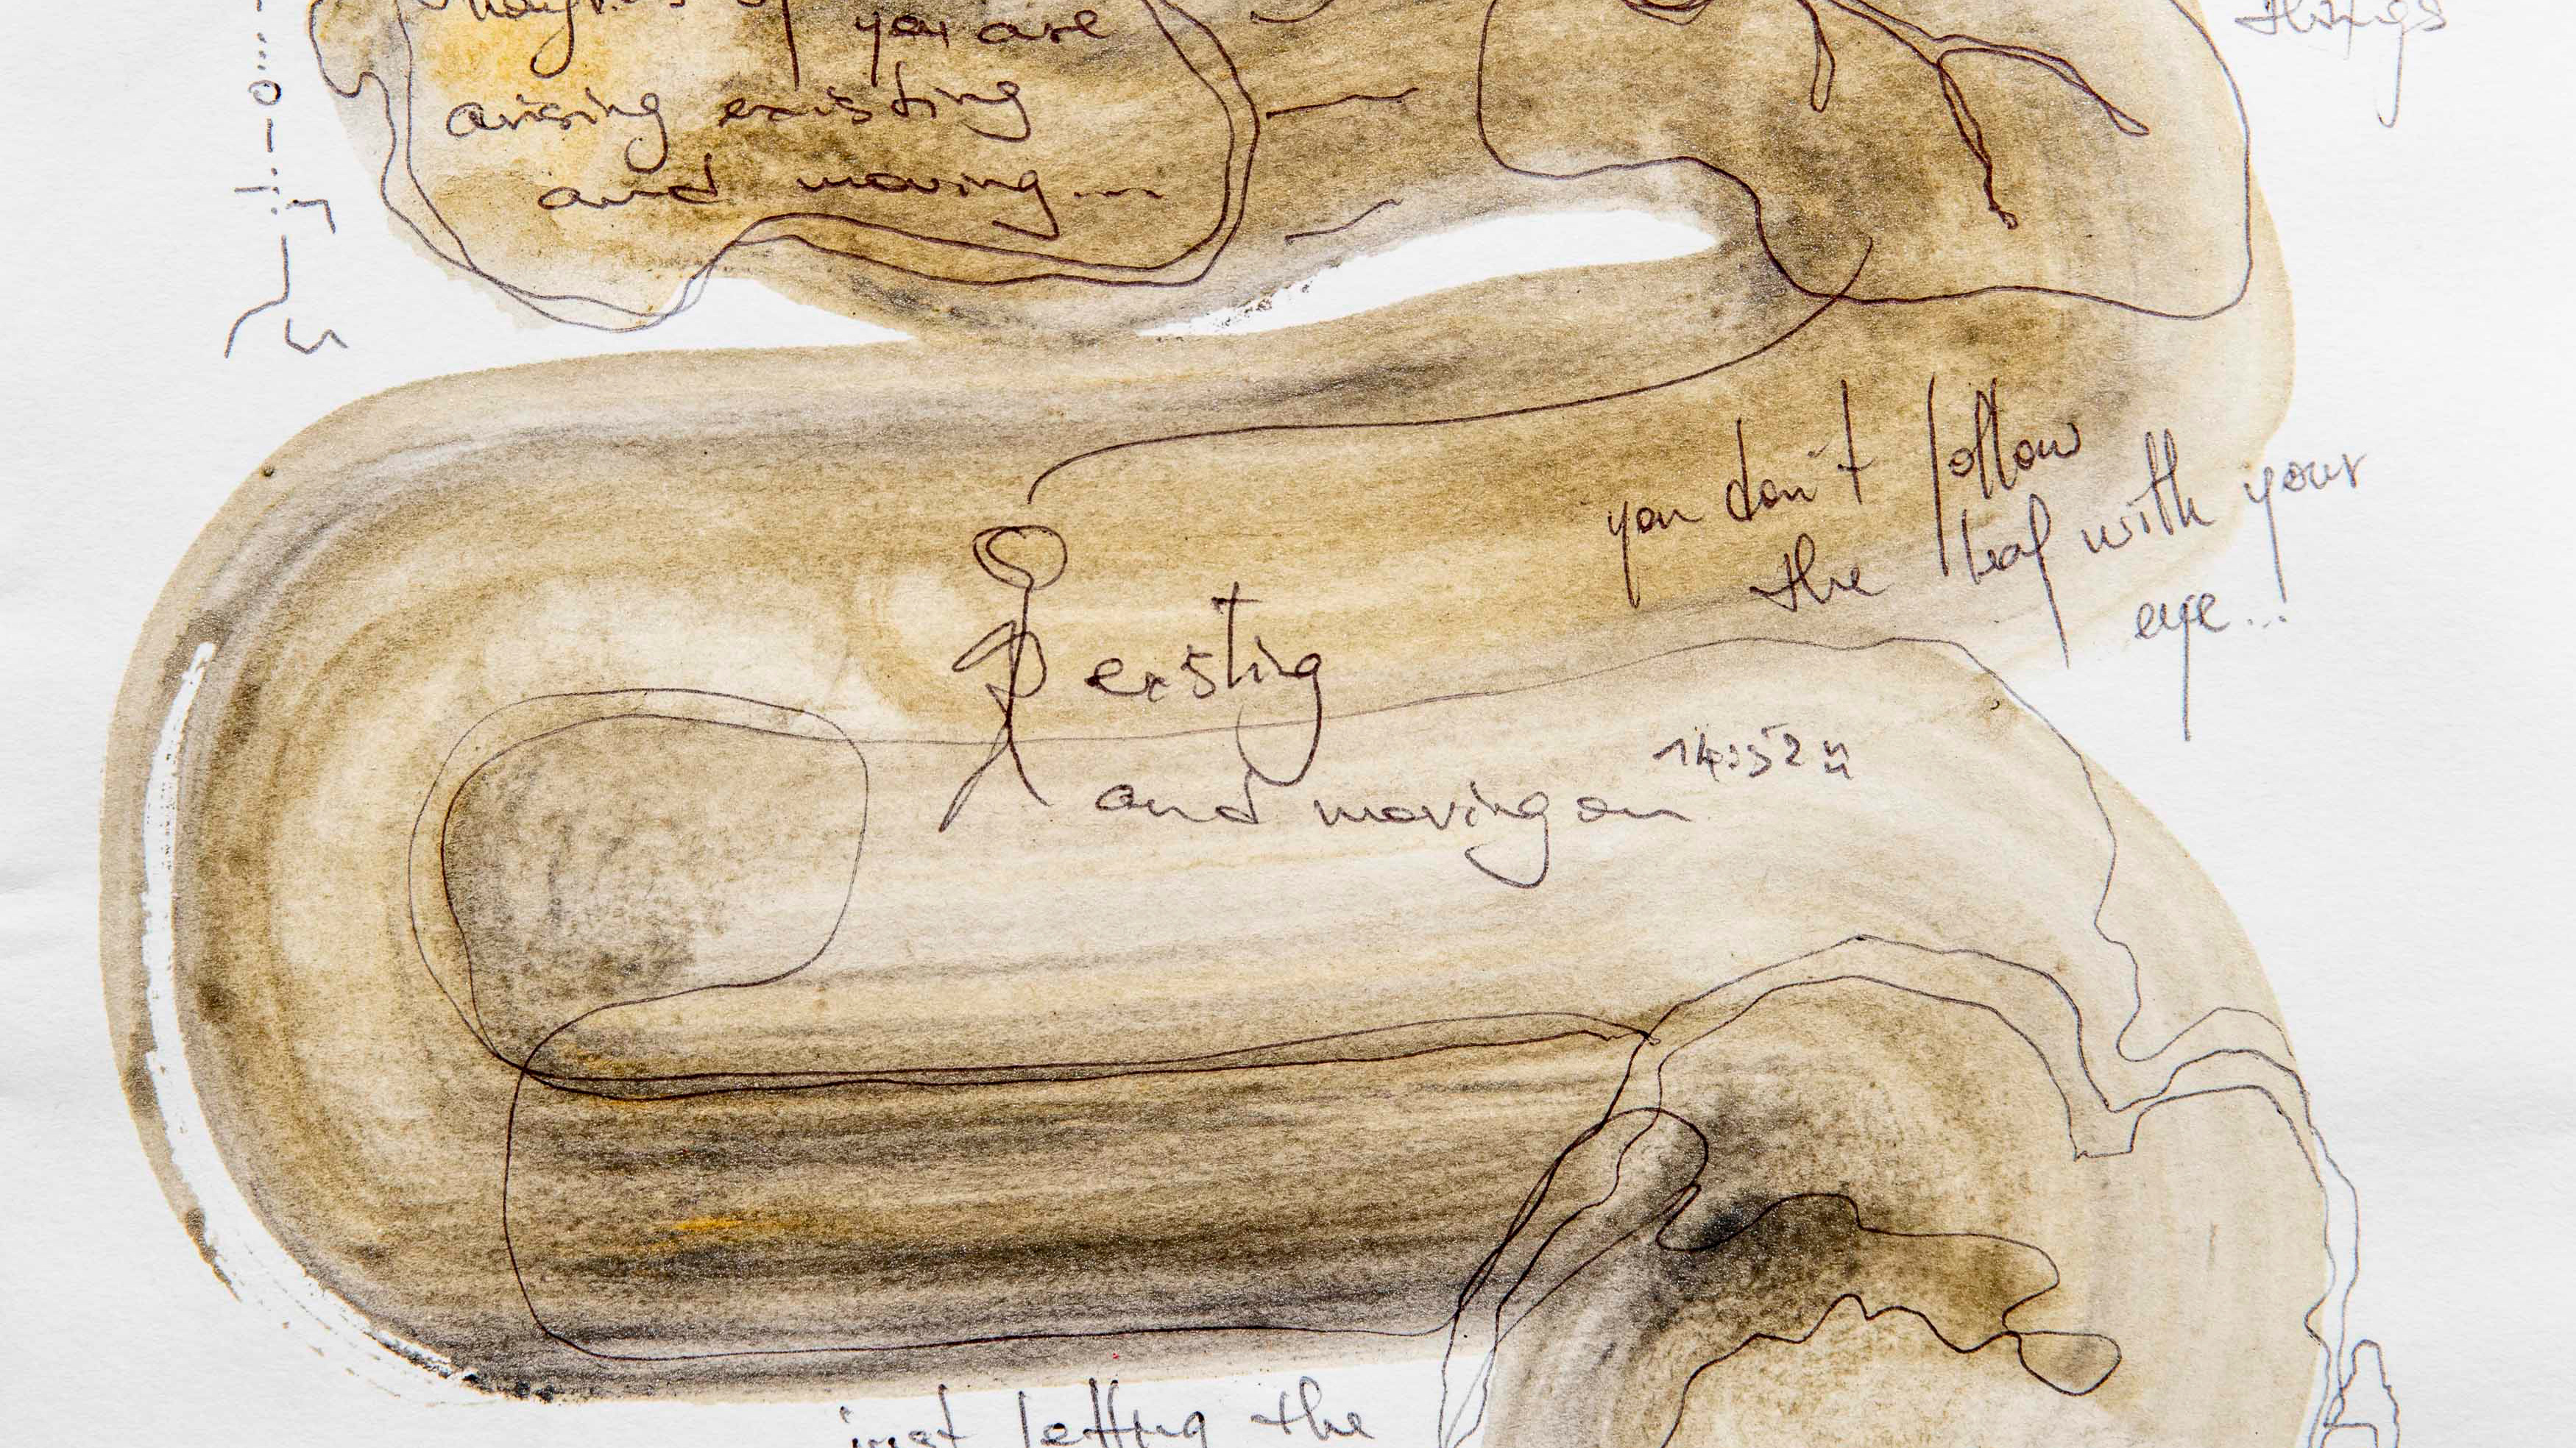 things
you are
arising existing
and moving...
you don't follow
the leaf with your
eye...!
existing
and moving on
14:52
just letting the